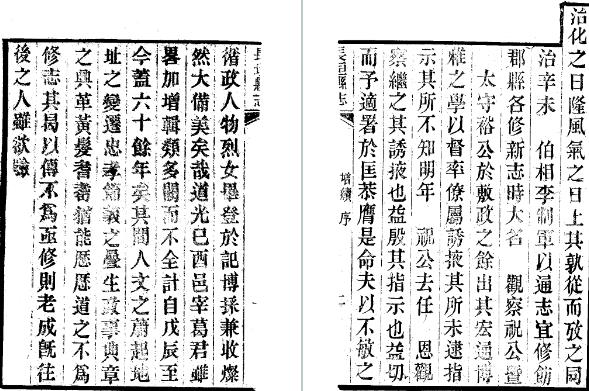 治化之日隆風氣之日上其孰從而攷之同
治辛未　伯相李制軍以通志宜修飭
郡縣各修新志時大名　觀察祝公暨
太守裕公於敷政之餘出其宏通博
雅之學以督率僚屬誘掖其所未逮指
示其所不知明年　祝公去任　恩觀
察繼之其誘掖也益殷其指示也益切
而予適署於匡恭膺是命夫以不敏之
長垣縣志
增續序
二
長垣縣志
循政人物烈女畢登於記博採兼收燦
然大備美矣哉道光己酉邑宰葛君雖
畧加增輯類多闕而不全計自戊辰至
今蓋六十餘年矣其間人文之蔚起地
址之變遷忠孝節義之疊生政事典章
之興革黃髮耆耇猶能歷歷道之不爲
修志其曷以傳不爲亟修則老成旣往
後之人雖欲